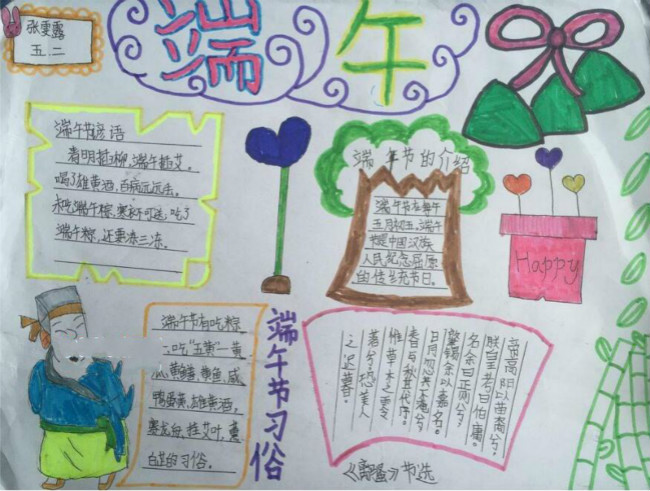 张雯露
五.二
端午
端午节谚语
清明插柳,端午插艾。
喝了雄黄酒,百病远远丢。
未吃端午粽,寒衣不可送;吃了
端午粽,还要冻三冻。
端午节的介绍
端午节在每年
五月初五,端午
节是中国汉族
人民纪念屈原
的传统节日。
Happy
端午节有吃粽
、吃“五黄”—黄
瓜、黄鳝、黄鱼、咸
鸭蛋黄、雄黄酒。
赛龙舟、挂艾叶、薰
白芷的习俗。
端午节习俗
帝高阳之苗裔兮,
朕皇考曰伯庸。
名余曰正则兮,
肇锡余以嘉名。
日月忽其不淹兮
春与秋其代序。
惟草木之零
落兮,恐美人
之迟暮。
《离骚》节选